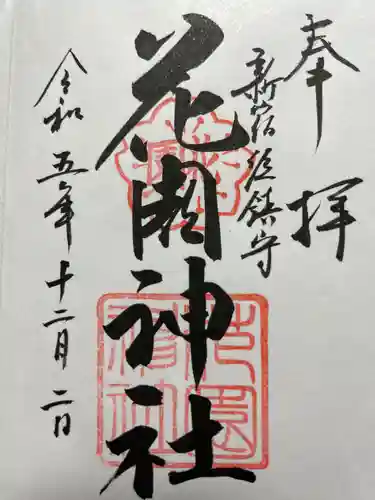 奉拝
新宿総鎮守
花園神社
令和五年十二月二日
花園神社